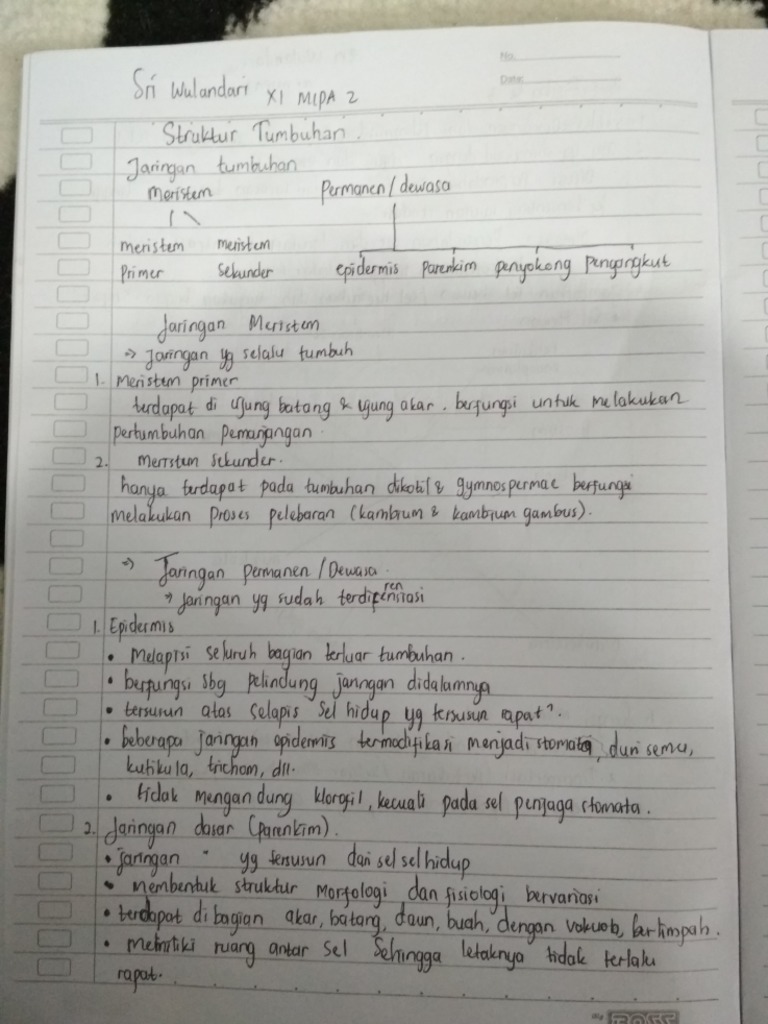 No.
Date:
Sri Wulandari XI MIPA 2
Struktur Tumbuhan.
Jaringan tumbuhan
meristem Permanen/dewasa
meristem meristem
Primer Sekunder epidermis Parenkim penyokong pengangkut
Jaringan Meristem
⇒ Jaringan yg selalu tumbuh
1. Meristem primer
terdapat di ujung batang & ujung akar. berfungsi untuk melakukan
pertumbuhan Pemanjangan.
2. meristem sekunder.
hanya terdapat pada tumbuhan dikotil & gymnospermae berfungsi
melakukan proses pelebaran (kambium & kambium gambus).
⇒ Jaringan permanen/Dewasa.
→ Jaringan yg sudah terdiferensiasi
1. Epidermis
• Melapisi seluruh bagian terluar tumbuhan.
• berfungsi sbg pelindung jaringan didalamnya
• tersusun atas selapis sel hidup yg tersusun rapat².
• beberapa jaringan epidermis termodifikasi menjadi stomata, duri semu,
kutikula, trichom, dll.
• tidak mengandung klorofil, kecuali pada sel penjaga stomata.
2. Jaringan dasar (parenkim).
• jaringan yg tersusun dari sel sel hidup
• membentuk struktur morfologi dan fisiologi bervariasi
• terdapat di bagian akar, batang, daun, buah, dengan vokuob, berlimpah.
• memiliki ruang antar sel sehingga letaknya tidak terlalu
rapat.
BOSS